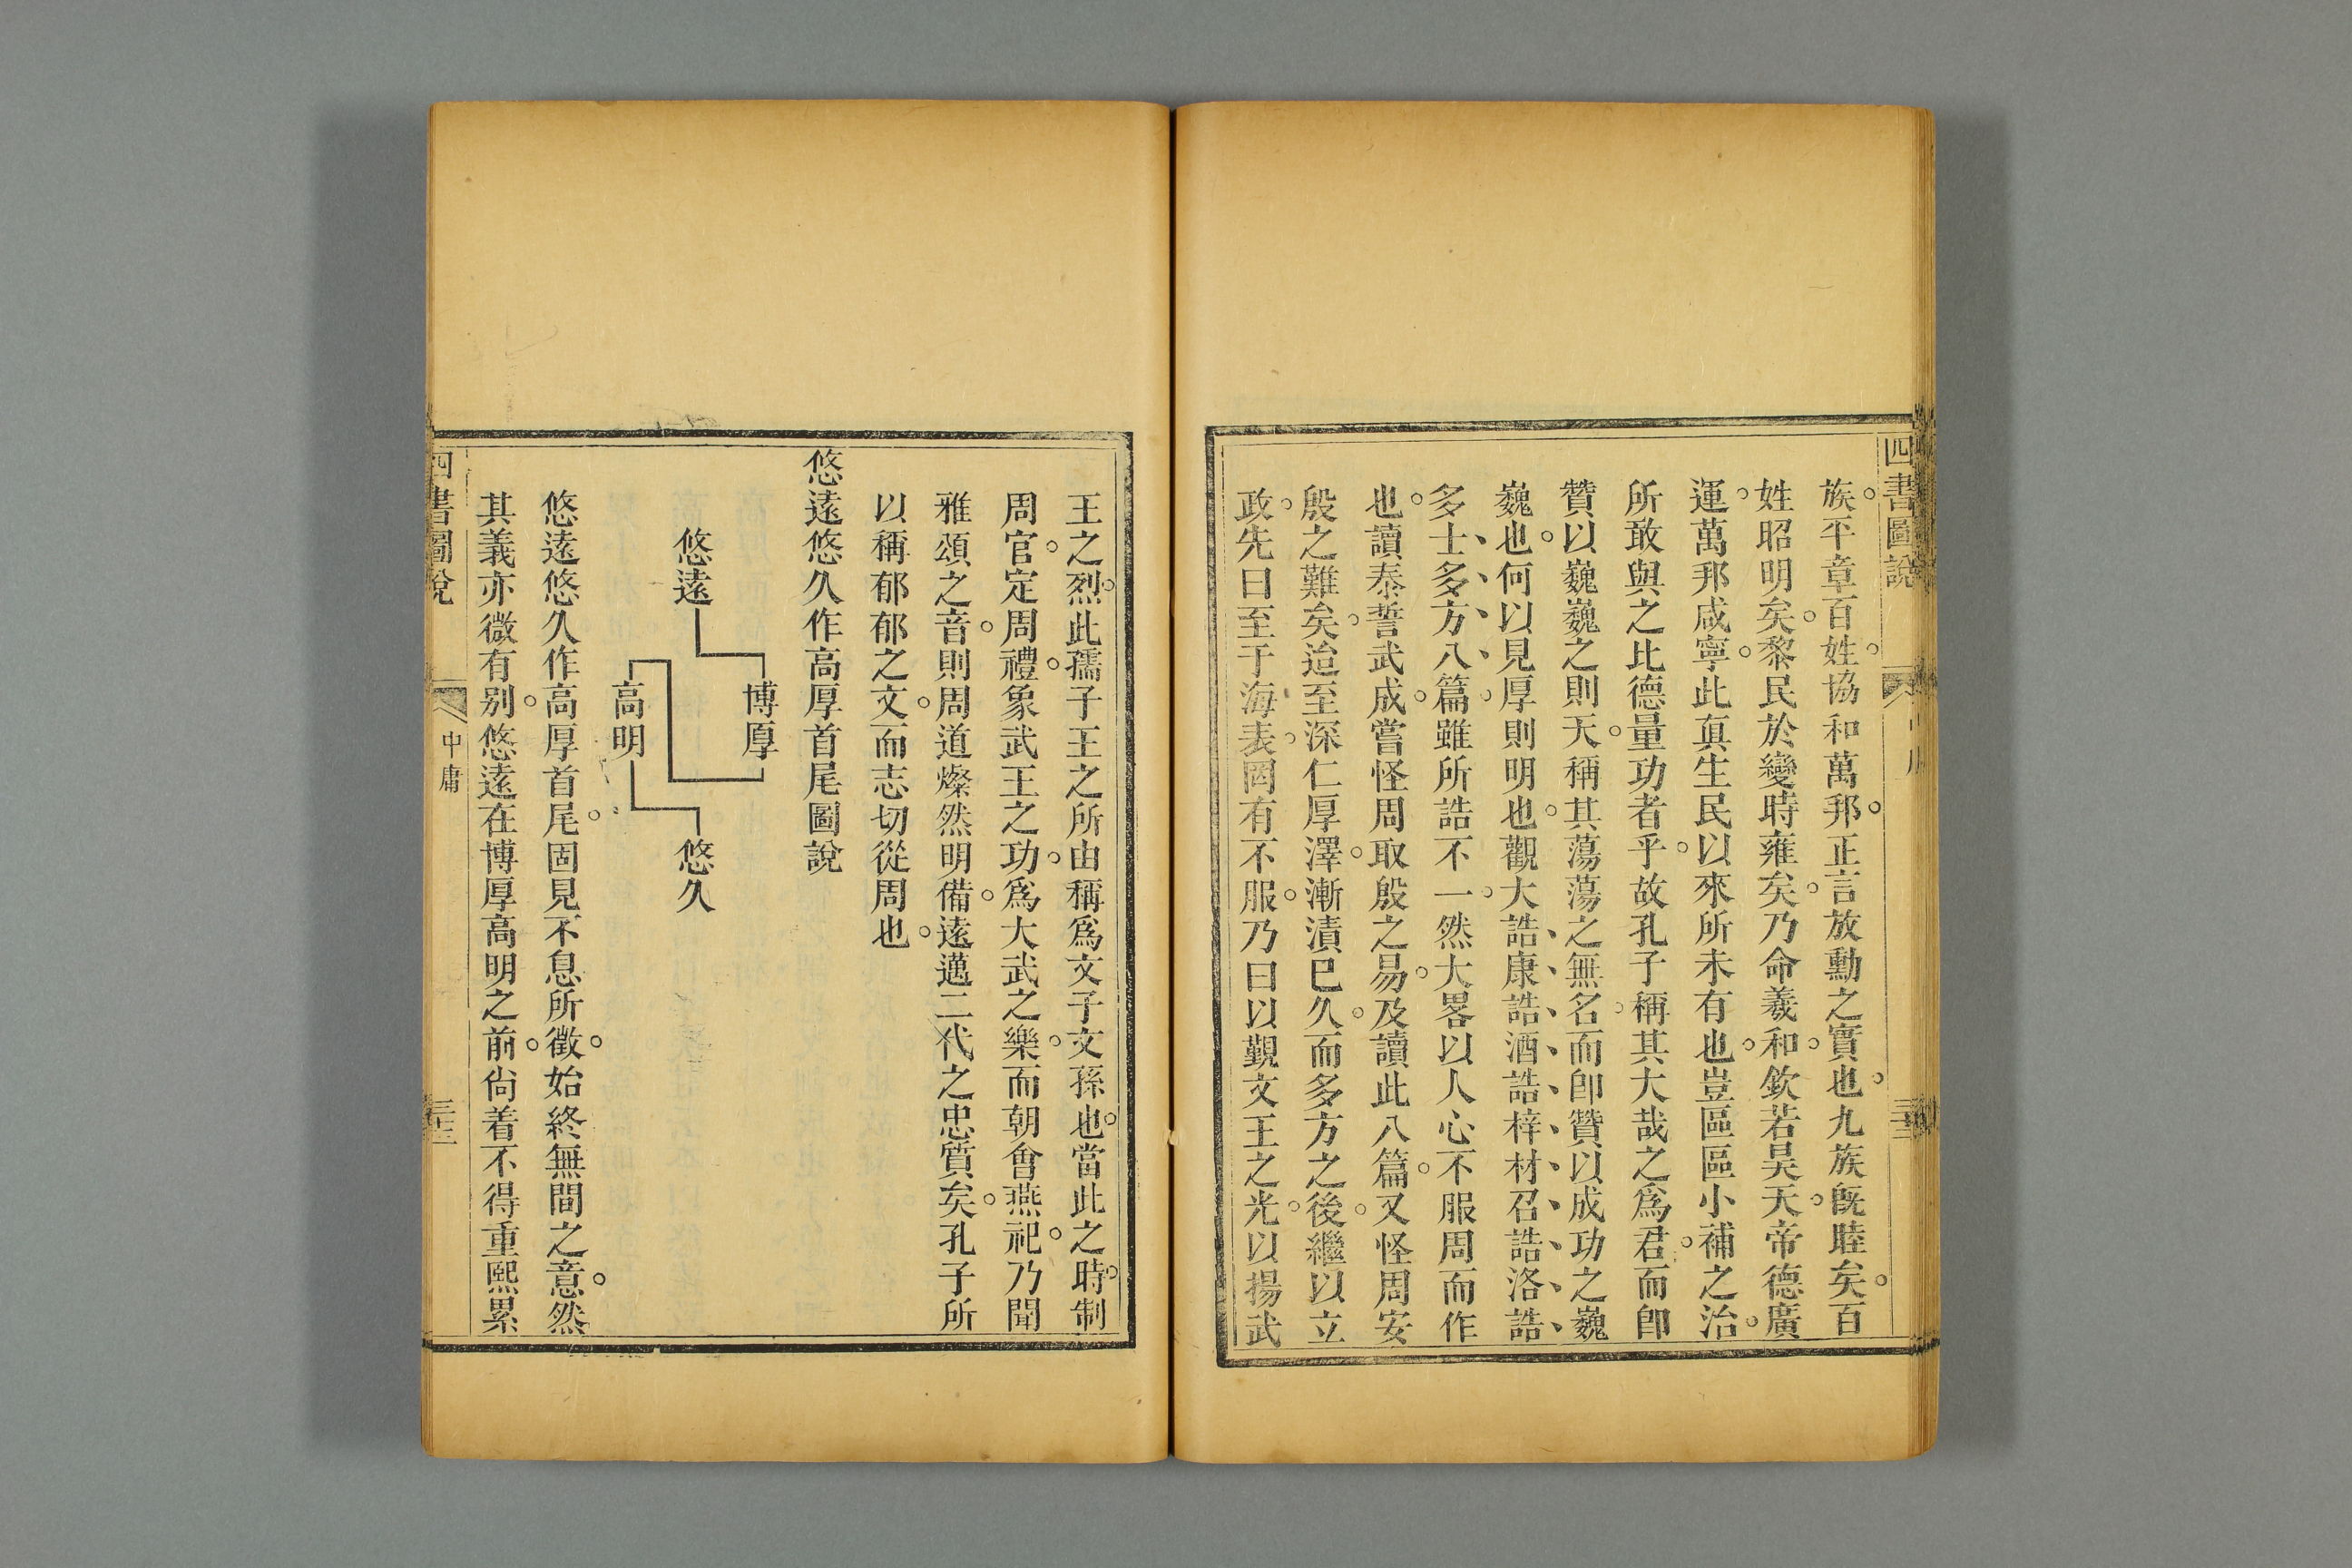 四書圖說
族平章百姓協和萬邦正言放勳之實也九族旣睦矣百
姓昭明矣黎民於變時雍矣乃命羲和欽若昊天帝德廣
運萬邦咸寧此眞生民以來所未有也豈區區小補之治
所敢與之比德量功者乎故孔子稱其大哉之爲君而卽
贊以巍巍之則天稱其蕩蕩之無名而卽贊以成功之巍
巍也何以見厚則明也觀大誥康誥酒誥梓材召誥洛誥
多士多方八篇雖所誥不一然大畧以人心不服周而作
也讀泰誓武成嘗怪周取殷之易及讀此八篇又怪周安
殷之難矣迨至深仁厚澤漸漬已久而多方之後繼以立
政先曰至于海表罔有不服乃曰以覲文王之光以揚武
王之烈此孺子王之所由稱爲文子文孫也當此之時制
周官定周禮象武王之功爲大武之樂而朝會燕祀乃聞
雅頌之音則周道燦然明備遠邁二代之忠質矣孔子所
以稱郁郁之文而志切從周也
悠遠悠久作高厚首尾圖說
博厚
悠遠
悠久
高明
悠遠悠久作高厚首尾固見不息所徵始終無間之意然
其義亦微有别悠遠在博厚高明之前尙着不得重熙累
四書圖說
中庸
三十三